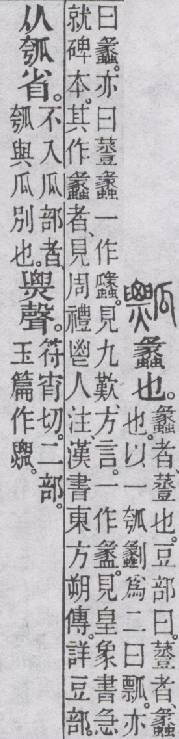 蠡也。
蠡者、𧯷也。豆部曰。𧯷者、蠡
也。以一瓠劙爲二曰瓢。亦
曰蠡。亦曰𧯷蠡一作。見九歎、方言。一作盠。見皇象書急
就碑本。其作蠡者、見周禮鬯人注、漢書東方朔傳。詳豆部。
从瓠省。
不入瓜部者、
瓠與瓜別也。
㶾聲。
符宵切。二部。
玉篇作。